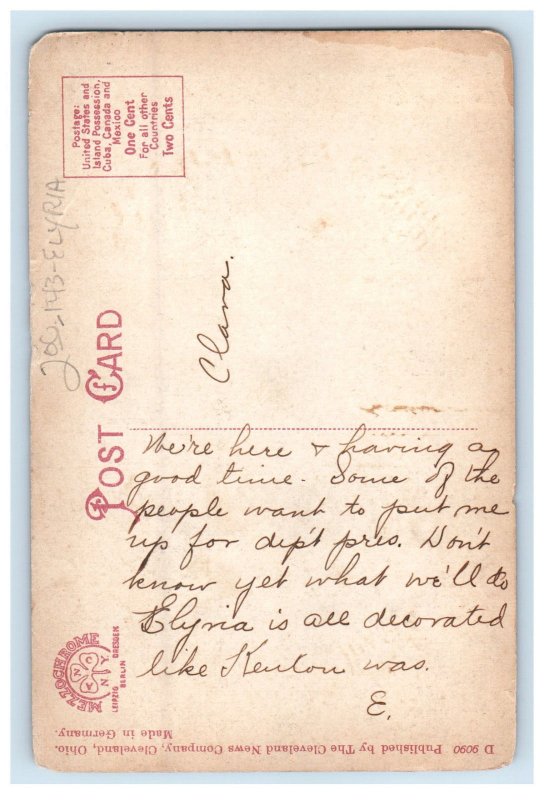 Postage:
United States and
Island Possession,
Cuba, Canada and
Mexico
One Cent
For all other
Countries
Two Cents
143-ELYRIA
POST CARD
Clara.
We're here & having a
good time. Some of the
people want to put me
up for dep't pres. Don't
know yet what we'll do
Elyria is all decorated
like Kenton was.
E.
MEZZOCHROME
ANCNY
LEIPZIG
BERLIN DRESDEN
D 9090 Published by The Cleveland News Company, Cleveland, Ohio.
Made in Germany.